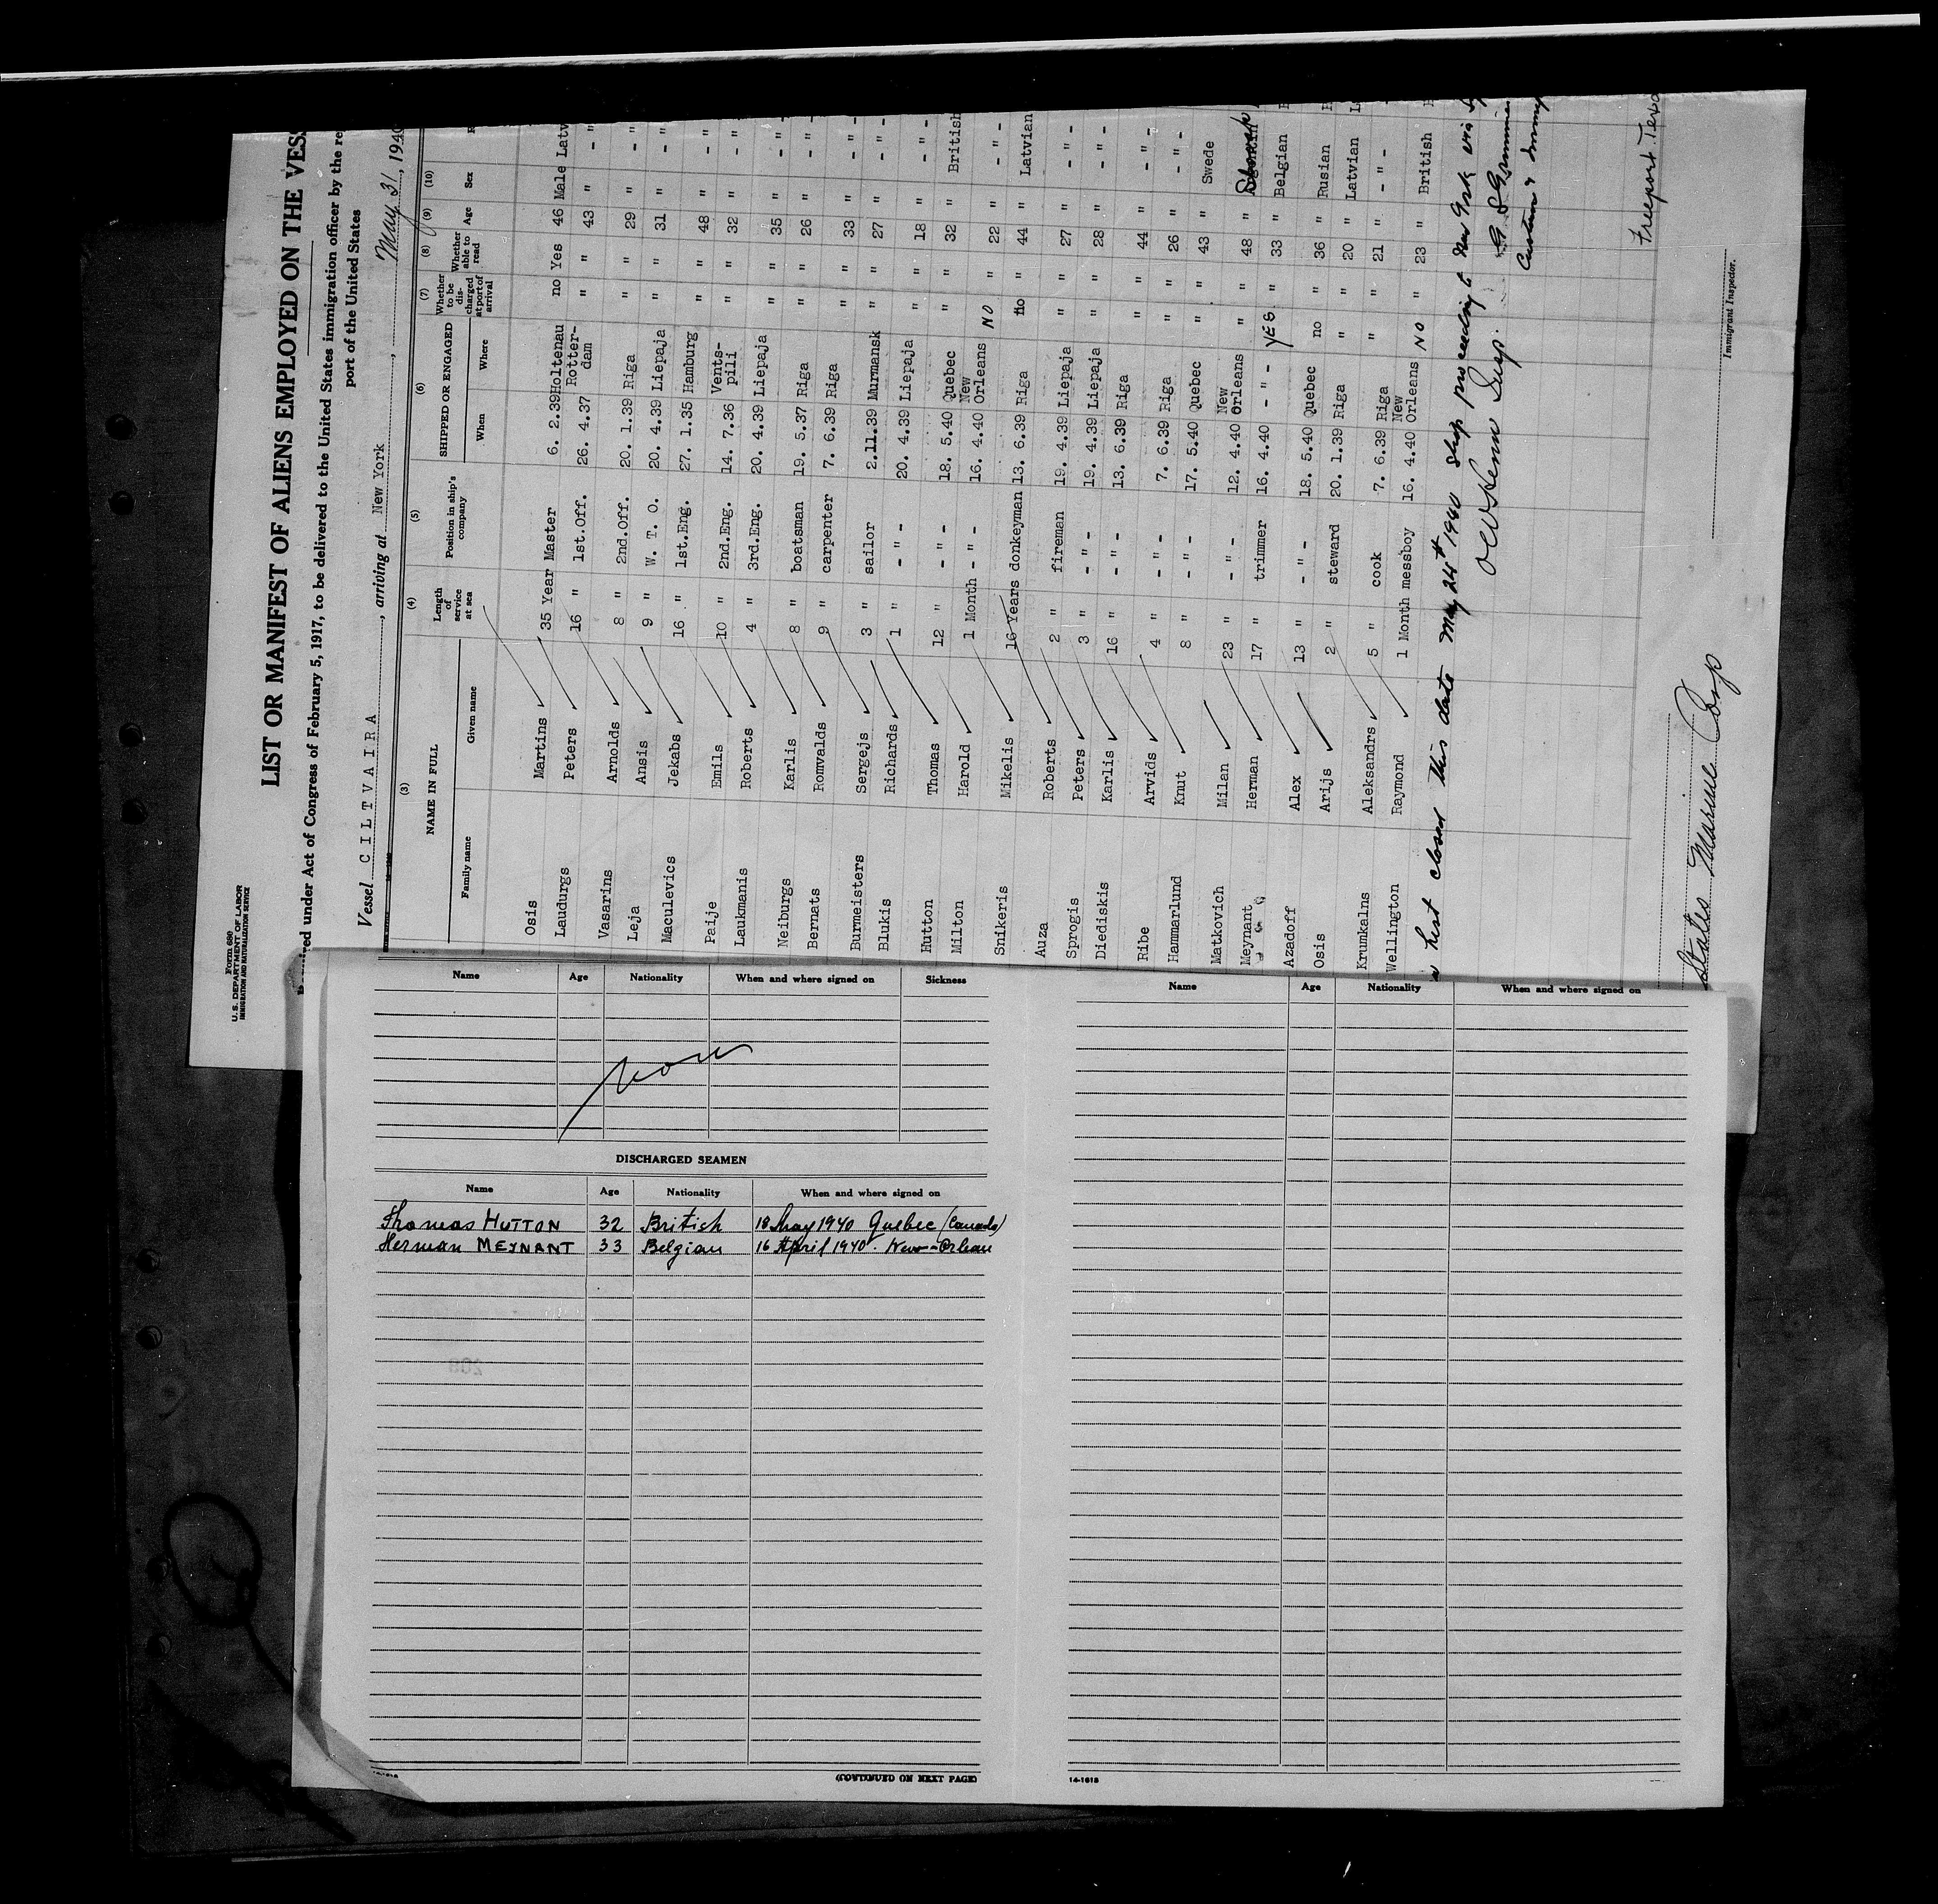 Form 680
U. S. DEPARTMENT OF LABOR
IMMIGRATION AND NATURALIZATION SERVICE
LIST OR MANIFEST OF ALIENS EMPLOYED ON THE VESS
under Act of Congress of February 5, 1917, to be delivered to the United States immigration officer by the re
port of the United States
Vessel CILTVAIRA, arriving at New York, May 31, 1940
(3) (4) (5) (6) (7) (8) (9) (10)
NAME IN FULL Length of service at sea Position in ship's company SHIPPED OR ENGAGED Whether to be discharged at port of arrival Whether able to read Age Sex
Family name Given name When Where
Osis Martins 35 Year Master 6. 2.39 Holtenau no Yes 46 Male Latv
Laudurgs Peters 16 " 1st.Off. 26. 4.37 Rotter-dam " " 43 " - "
Vasarins Arnolds 8 " 2nd.Off. 20. 1.39 Riga " " 29 " - " -
Leja Ansis 9 " W. T. O. 20. 4.39 Liepaja " " 31 " - " -
Maculevics Jekabs 16 " 1st.Eng. 27. 1.35 Hamburg " " 48 " - " -
Paije Emils 10 " 2nd.Eng. 14. 7.36 Vents-pili " " 32 " - " -
Laukmanis Roberts 4 " 3rd.Eng. 20. 4.39 Liepaja " " 35 " - " -
Neiburgs Karlis 8 " boatsman 19. 5.37 Riga " " 26 " - " -
Bernats Romvalds 9 " carpenter 7. 6.39 Riga " " 33 " - " -
Burmeisters Sergejs 3 " sailor 2.11.39 Murmansk " " 27 " - " -
Blukis Richards 1 " - " - 20. 4.39 Liepaja " " 18 " - " -
Hutton Thomas 12 " - " - 18. 5.40 Quebec " " 32 " British
Milton Harold 1 Month - " - 16. 4.40 New Orleans NO " 22 " - " -
Snikeris Mikelis 16 Years donkeyman 13. 6.39 Riga no " 44 " Latvian
Auza Roberts 2 " fireman 19. 4.39 Liepaja " " 27 " - " -
Sprogis Peters 3 " - " - 19. 4.39 Liepaja " " 28 " - " -
Diediskis Karlis 16 " - " - 13. 6.39 Riga " " 44 " - " -
Ribe Arvids 4 " - " - 7. 6.39 Riga " " 26 " - " -
Hammarlund Knut 8 " - " - 17. 5.40 Quebec " " 43 " Swede
Matkovich Milan 23 " - " - 12. 4.40 New Orleans " " 48 "
Meynant Herman 17 " trimmer 16. 4.40 - " - YES " 33 " Belgian
Azadoff Alex 13 " - " - 18. 5.40 Quebec no " 36 " Rusian
Osis Arijs 2 " steward 20. 1.39 Riga " " 20 " Latvian
Krumkalns Aleksandrs 5 " cook 7. 6.39 Riga " " 21 " - " -
Wellington Raymond 1 Month messboy 16. 4.40 New Orleans NO " 23 " British
List closed this date May 24th 1940 Ship proceeding to New York via
Insp.
Freeport Texa
States Marine Corp
Immigrant Inspector.
Name Age Nationality When and where signed on Sickness
None
DISCHARGED SEAMEN
Name Age Nationality When and where signed on
Thomas HUTTON 32 British 18 May 1940 Quebec (Canada)
Herman MEYNANT 33 Belgian 16 April 1940. New-Orleans
(CONTINUED ON NEXT PAGE)
Name Age Nationality When and where signed on
14-1615